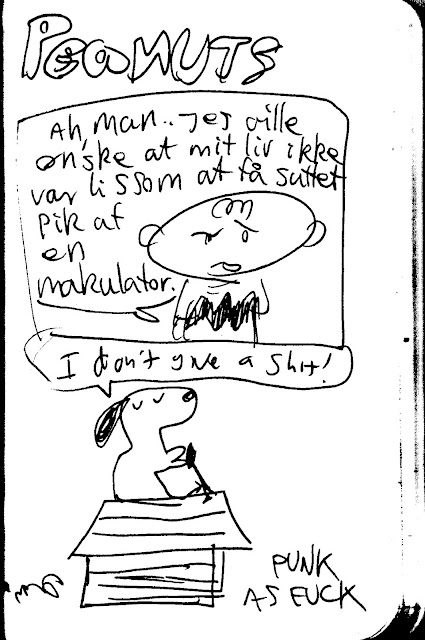 PEANUTS
Ah, man.. Jeg ville
ønske at mit liv ikke
var lissom at få suttet
pik af
en
makulator.
I don't give a shit!
PUNK
AS FUCK